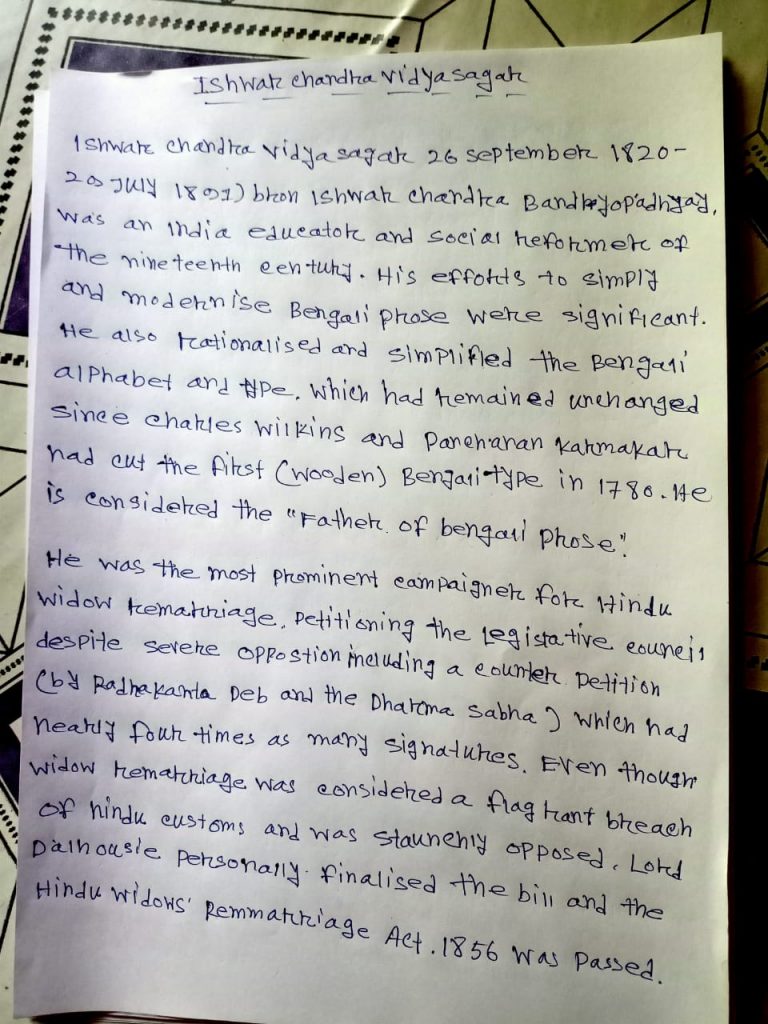 Ishwar Chandra Vidyasagar
Ishwar Chandra Vidyasagar 26 September 1820-
29 July 1891) bron Ishwar Chandra Bandyopadhyay,
was an India educator and social reformer of
the nineteenth century. His efforts to simply
and modernise Bengali prose were significant.
He also rationalised and simplified the Bengali
alphabet and type, which had remained unchanged
since Charles Wilkins and Panchanan Karmakar
had cut the first (wooden) Bengali type in 1780. He
is considered the "Father of bengali prose".
He was the most prominent campaigner for Hindu
widow remarriage, petitioning the legistative council
despite severe oppostion including a counter petition
(by Radhakanta Deb and the Dharma Sabha) which had
nearly four times as many signatures. Even though
widow remarriage was considered a flagrant breach
of hindu customs and was staunchly opposed, Lord
Dalhousie personally finalised the bill and the
Hindu widows' Remmarriage Act. 1856 was passed.